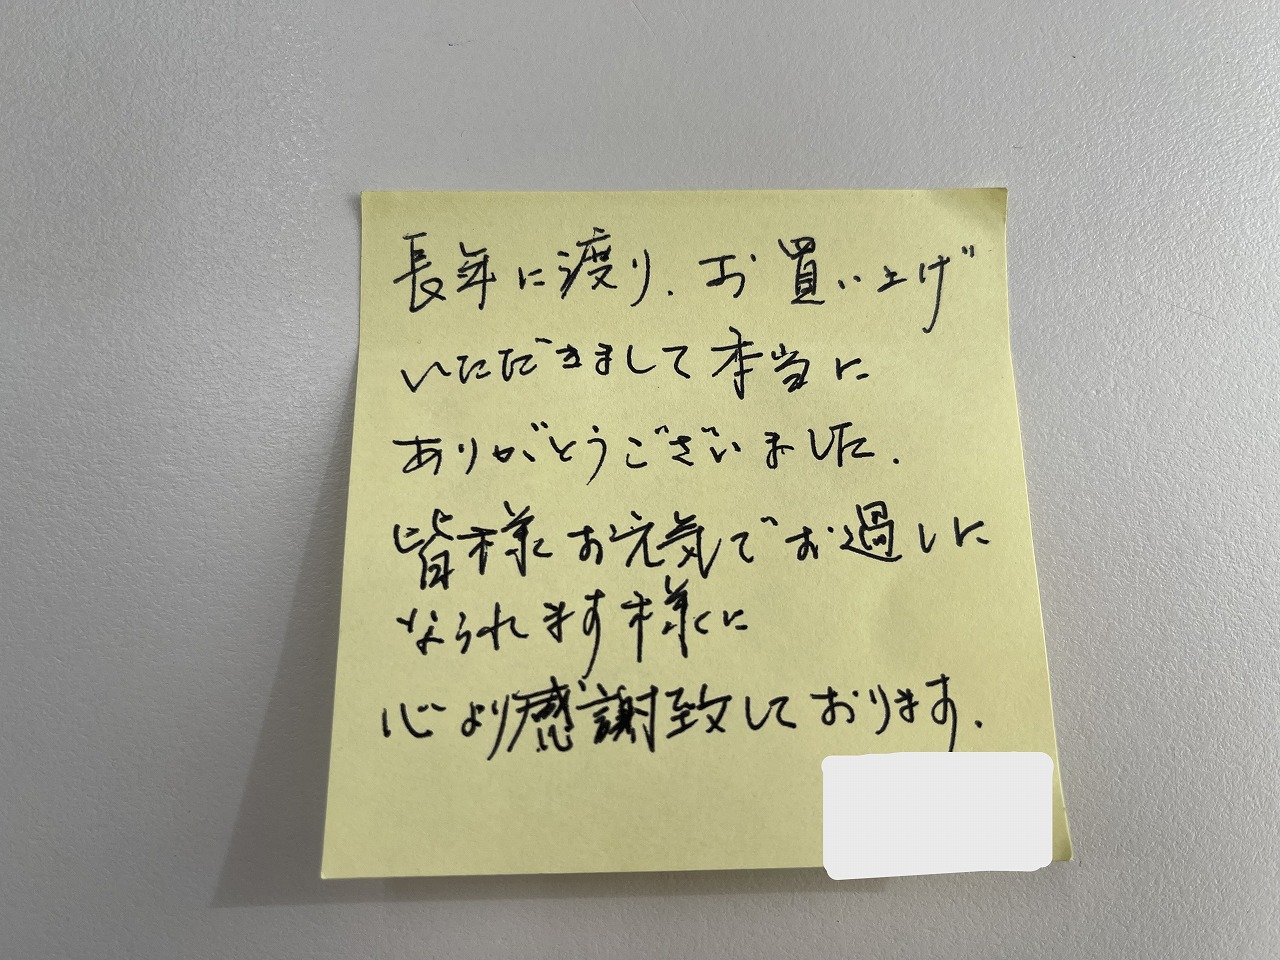 長年に渡り、お買い上げ
いただきまして本当に
ありがとうございました。
皆様お元気でお過しに
なられます様に
心より感謝致しております。